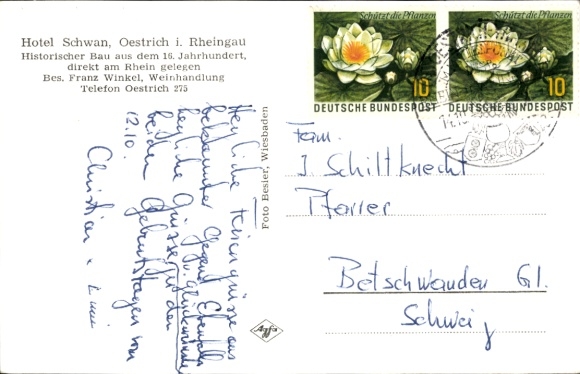 Hotel Schwan, Oestrich i. Rheingau
Historischer Bau aus dem 16. Jahrhundert,
direkt am Rhein gelegen
Bes. Franz Winkel, Weinhandlung
Telefon Oestrich 275
Schützt die Pflanzen
10
DEUTSCHE BUNDESPOST
Schützt die Pflanzen
10
DEUTSCHE BUNDESPOST
Herzliche aus
bekannter Gegend Ebenfalls
herzliche Grüsse u. Glückwünsche
für den
beiden Geburtstagen vom
12.10.
Christian
Foto Besier, Wiesbaden
Agfa
Fam.
J. Schiltknecht
Pfarrer
Betschwanden Gl.
Schweiz